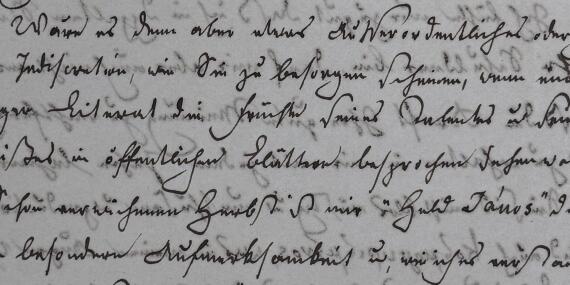 Wäre es denn aber etwas Außerordentliches oder
Indiscretion, wie Sie zu besorgen scheinen, wenn
ger Literat die Früchte seines Talentes u
in öffentlichen Blättern besprochen sehen
Schon verwichenen Herbst ist mir "Held János" d
besondern Aufmerksamkeit u,